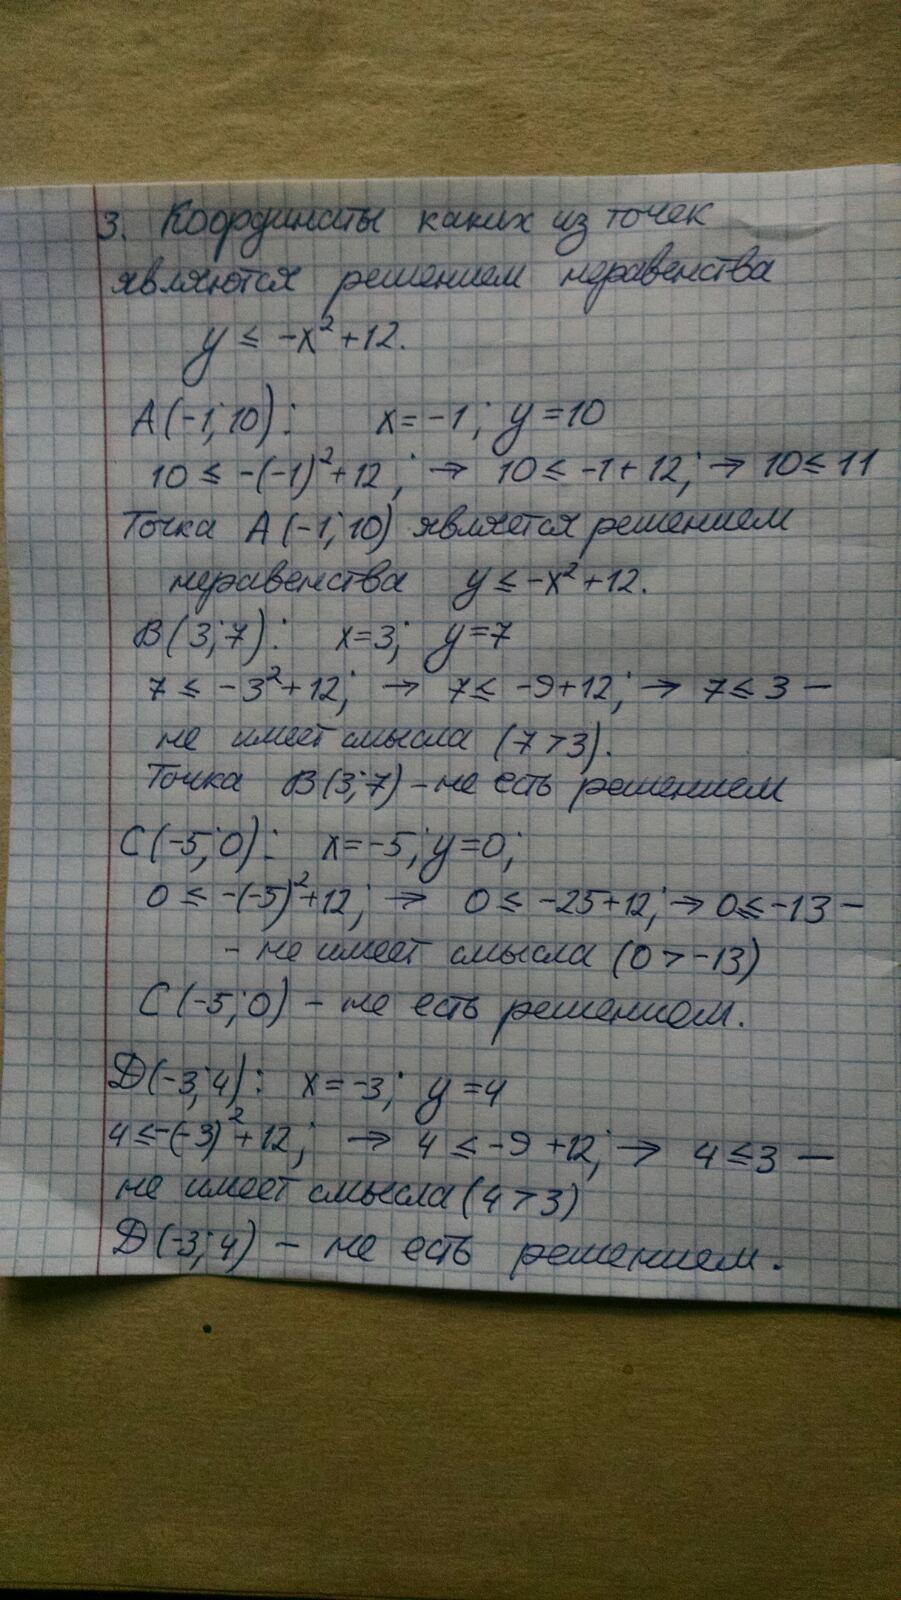 3. Координаты каких из точек
являются решением неравенства
y ≤ -x² + 12.
A(-1; 10): x = -1; y = 10
10 ≤ -(-1)² + 12; → 10 ≤ -1 + 12; → 10 ≤ 11
Точка A(-1; 10) является решением
неравенства y ≤ -x² + 12.
B(3; 7): x = 3; y = 7
7 ≤ -3² + 12; → 7 ≤ -9 + 12; → 7 ≤ 3 —
не имеет смысла (7 > 3).
Точка B(3; 7) - не есть решением
C(-5; 0): x = -5; y = 0;
0 ≤ -(-5)² + 12; → 0 ≤ -25 + 12; → 0 ≤ -13 -
- не имеет смысла (0 > -13)
C(-5; 0) - не есть решением.
D(-3; 4): x = -3; y = 4
4 ≤ -(-3)² + 12; → 4 ≤ -9 + 12; → 4 ≤ 3 —
не имеет смысла (4 > 3)
D(-3; 4) - не есть решением.